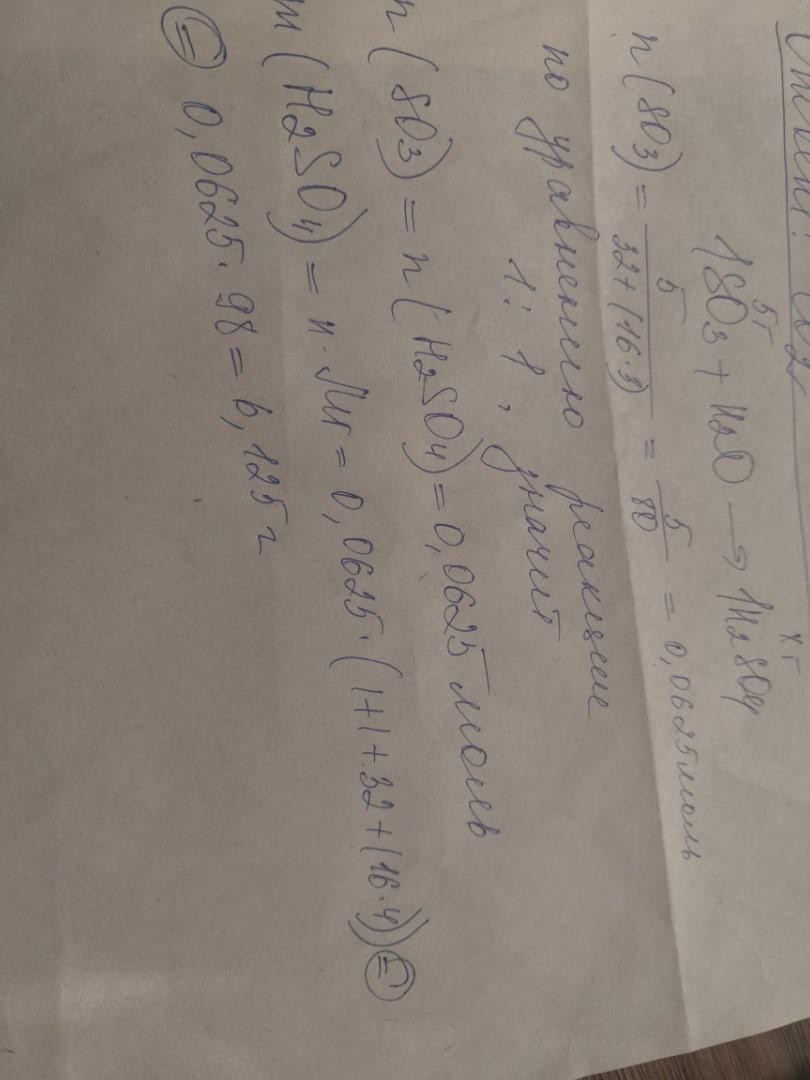 Ответ:
5г хг
1SO3 + H2O → 1H2SO4
n(SO3) = 5/32+(16·3) = 5/80 = 0,0625 моль
по уравнению реакции
1:1, значит
n(SO3) = n(H2SO4) = 0,0625 моль
m(H2SO4) = n·Mr = 0,0625·(1+1+32+(16·4)) =
= 0,0625·98 = 6,125 г